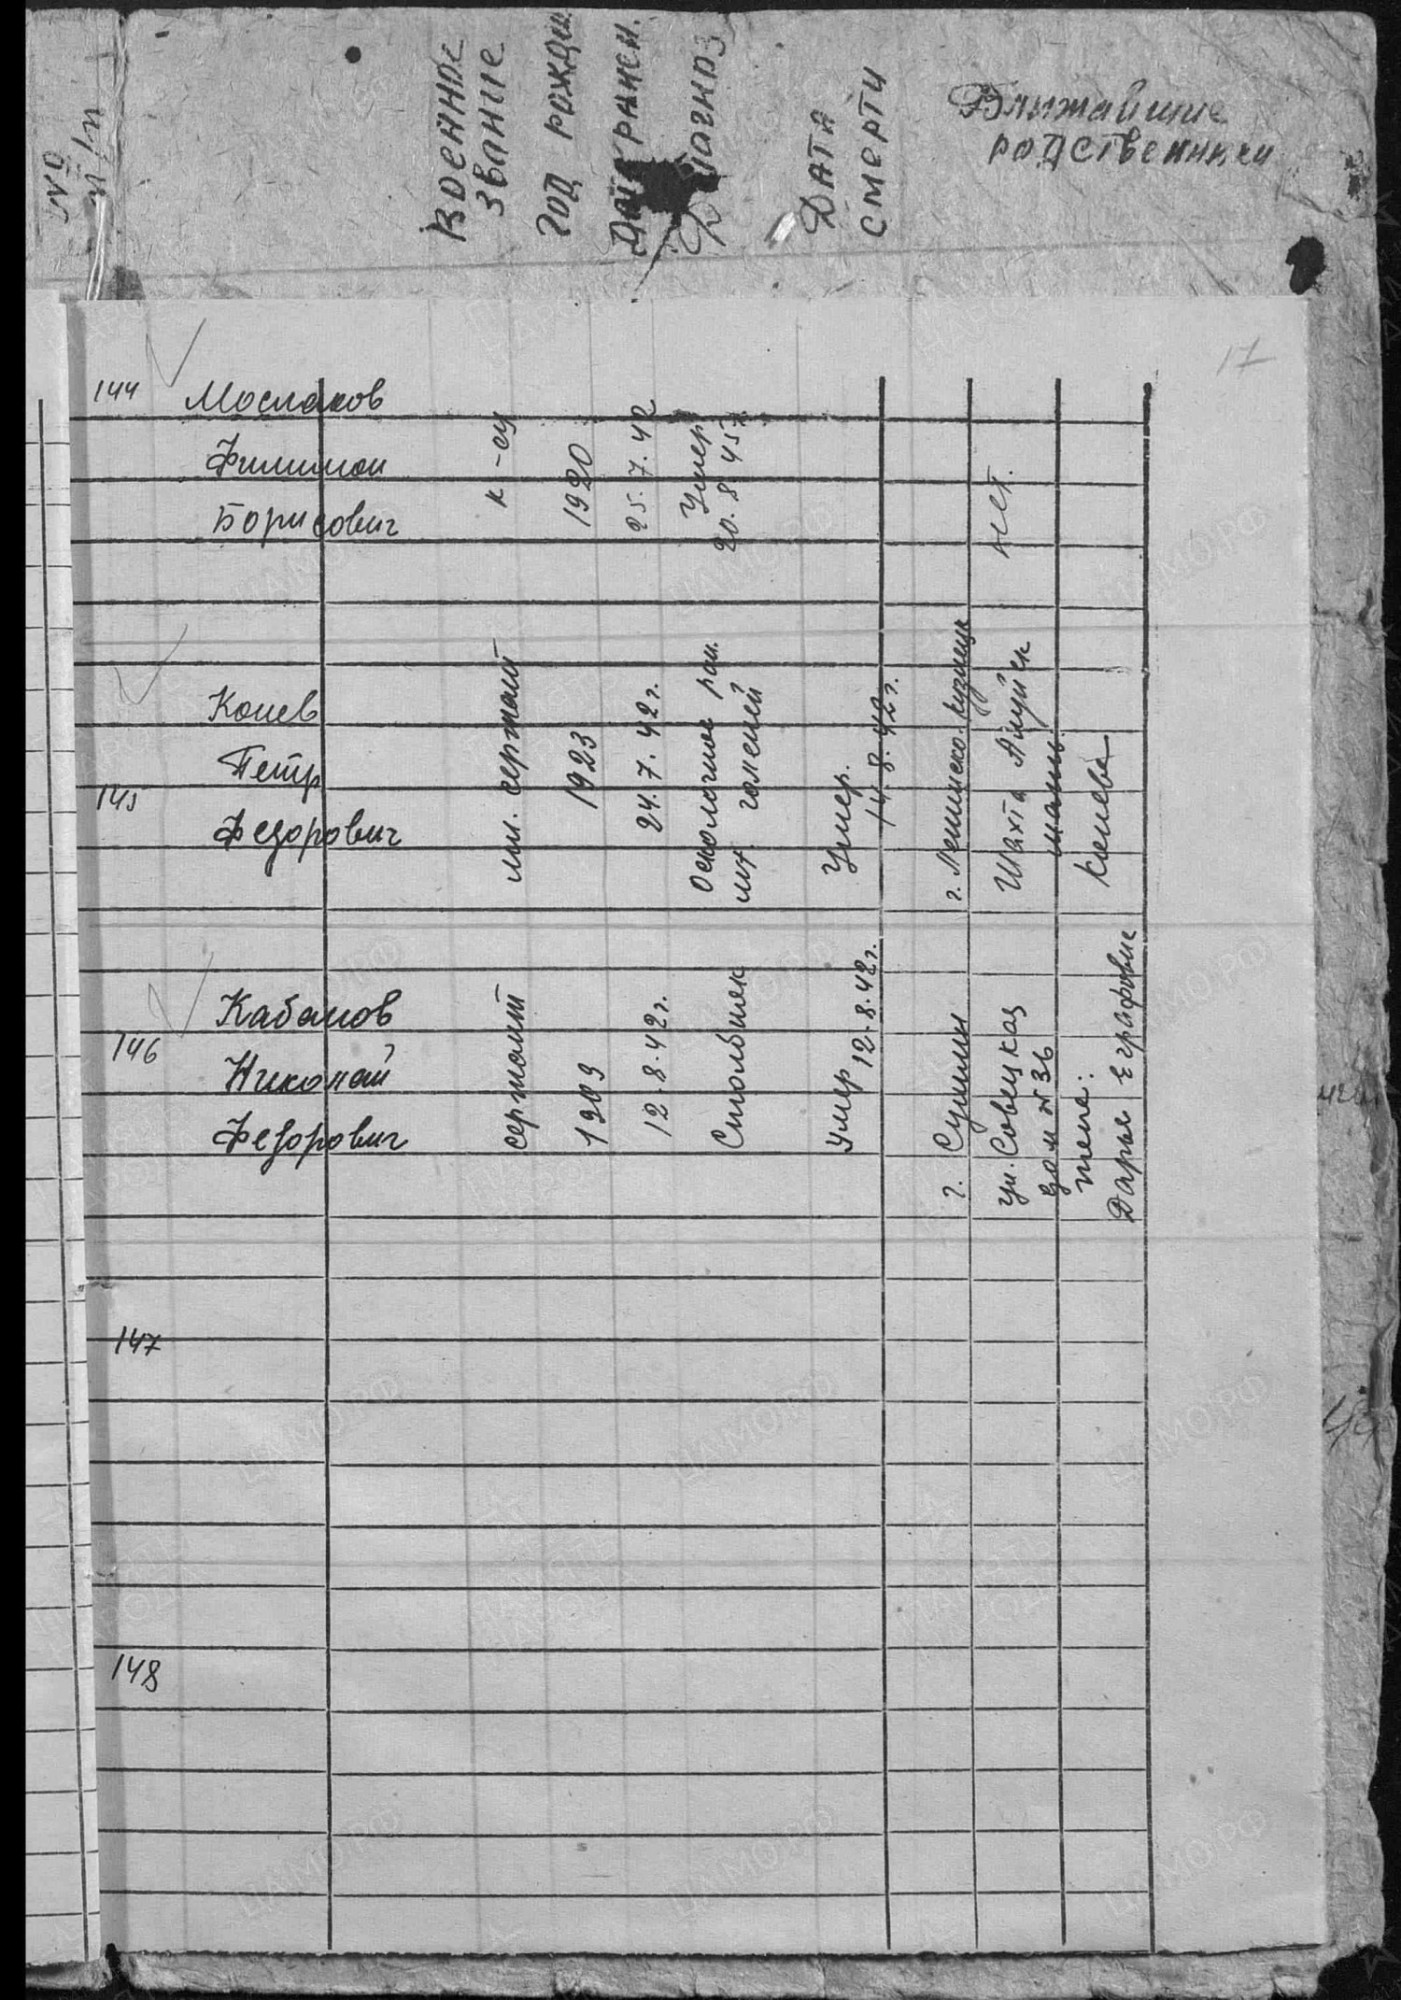 №
п/п
Военное
звание
год рожден.
Дата ранен.
Диагноз
Дата
смерти
Ближайшие
родственники
17
144
Маслаков
Филимон
Борисович
1920
25.7.42
Умер
20.8.45г.
нет.
145
Конев
Петр
Федорович
мл. сержант
1923
24.7.42г.
Осколочное ран.
голеней
Умер.
14.8.42г.
г. Ленинско. кузнецк
Шахта
мать
Конева
146
Кабанов
Николай
Федорович
сержант
1909
12.8.42г.
Столбняк
Умер
12.8.42г.
г. Сумин
ул. Совецкая
дом № 36
жена:
Дарья Еграфовне
147
148
ЦАМО.РФ
ПАМЯТЬ
НАРОДА